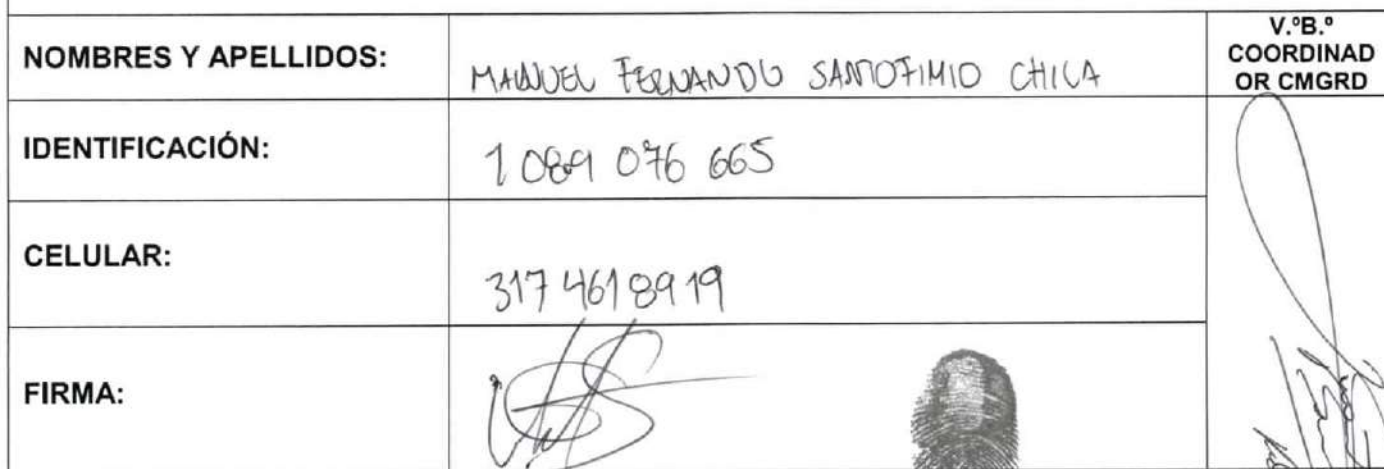 NOMBRES Y APELLIDOS:
MANUEL FERNANDO SANTOFIMIO CHILA
V.ºB.º
COORDINAD
OR CMGRD
IDENTIFICACIÓN:
1 089 076 665
CELULAR:
317 461 89 19
FIRMA: